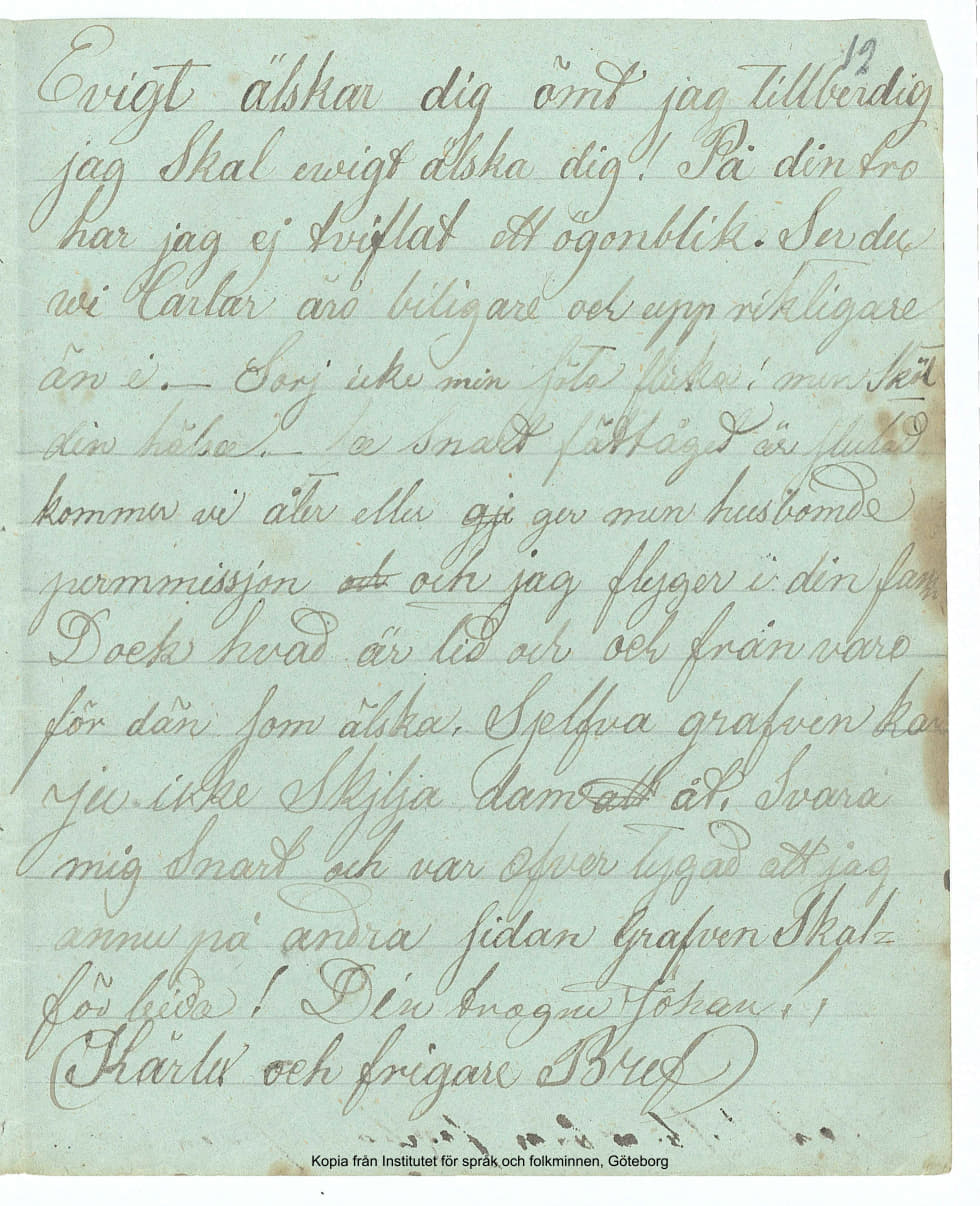 12
Evigt älskar dig ömt jag tillberdig
jag Skal ewigt älska dig! På din tro
har jag ej tviflat ett ögonblik. Ser du
wi Carlar äro biligare och upp riktligare
än i. — Sorj icke min söta flicka! men Sköt
din hälsa! — så snart fälttåget är slutad
kommer vi åter eller gji ger min husbomde
permmissjon och och jag flyger i din famn
Dock hvad är tid och och från varo
för dän som älska. Sjelfva grafven kan
ju ikke Skjlja dam att åt. Svara
mig Snart och var öfver tygad att jag
annu på andra sidan Grafven Skal=
för blida! Din trogne Johan!,
(Kärlex och frigare Bref)
Kopia från Institutet för språk och folkminnen, Göteborg